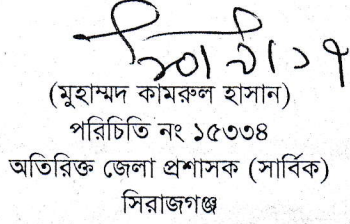 (মুহাম্মদ কামরুল হাসান)
পরিচিতি নং ১৫৩৩৪
অতিরিক্ত জেলা প্রশাসক (সার্বিক)
সিরাজগঞ্জ